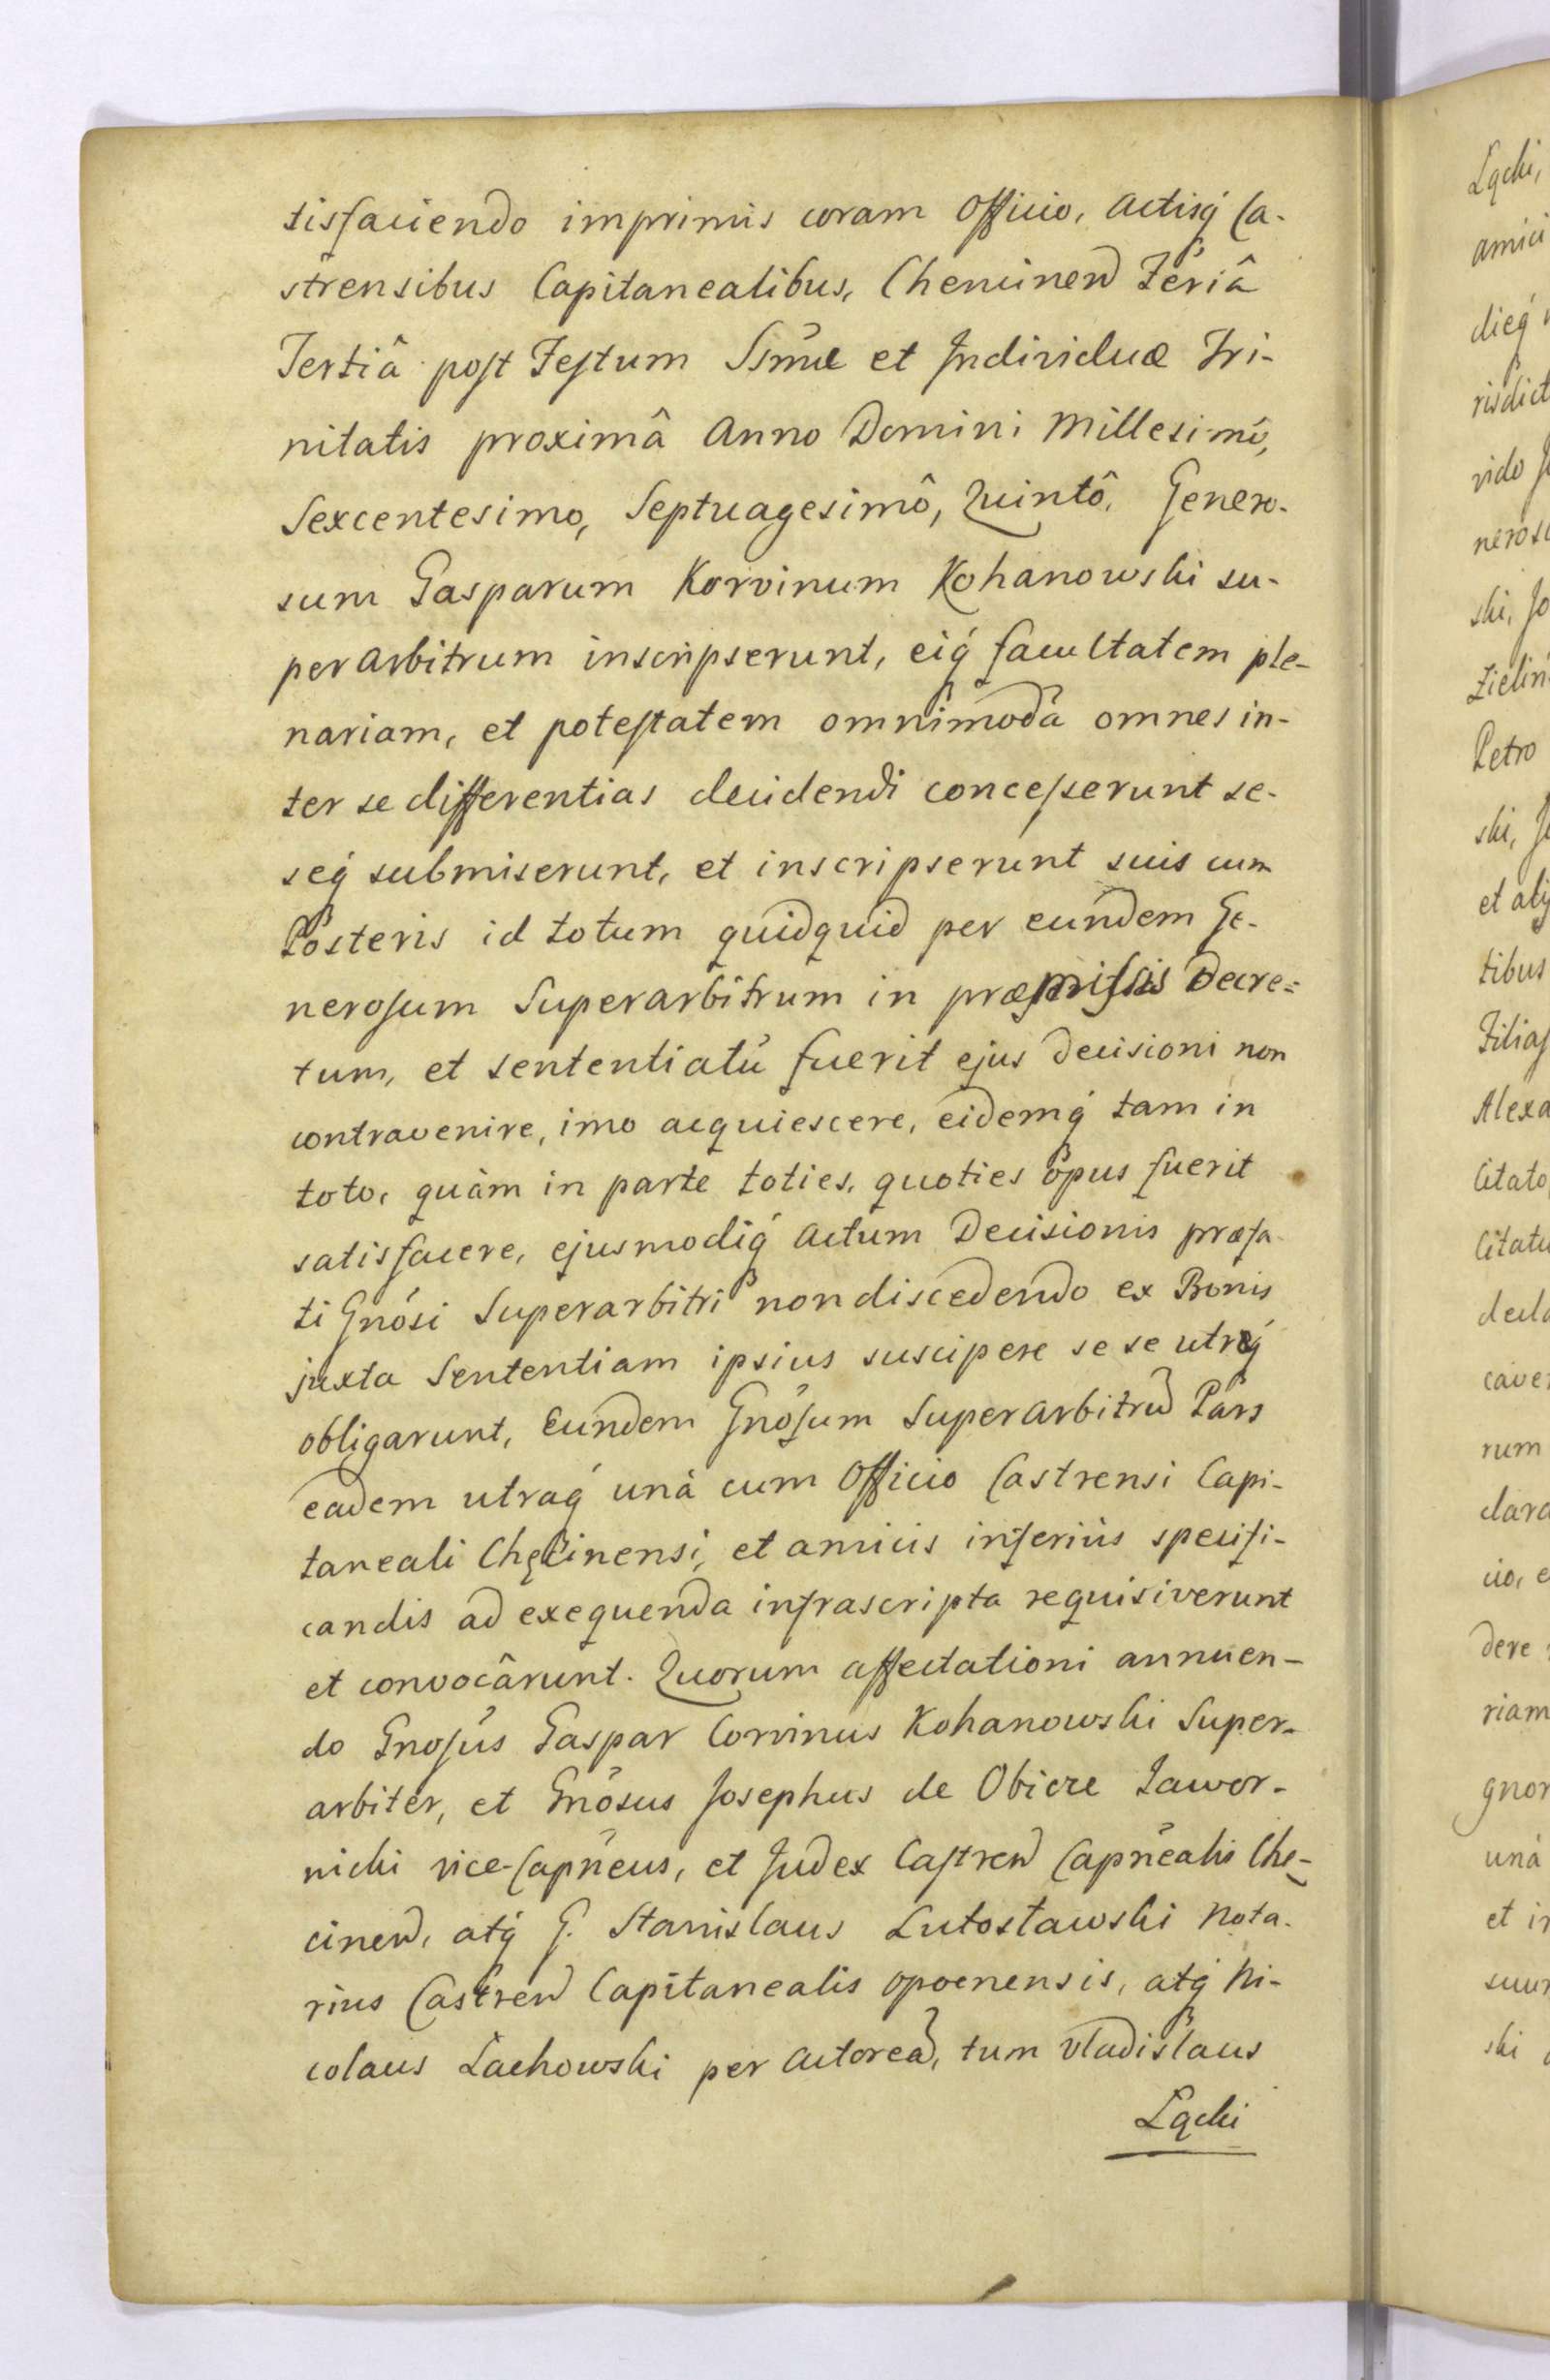 tisfaciendo imprimis coram Officio, Actisq́ Ca-
strensibus Capitanealibus, Chencinen Feriâ
Tertiâ post Festum Ssmæ et Individuæ Tri-
nitatis proximâ Anno Domini Millesimô,
Sexcentesimo, Septuagesimô, Quintô, Genero-
sum Gasparum Korvinum Kohanowski su-
perarbitrum inscripserunt, eiq́ facultatem ple-
nariam, et potestatem omnimodã omnes in-
ter se differentias decidendi concesserunt se-
seq́ submiserunt, et inscripserunt suis cum
Posteris id totum quidquid per eundem Ge-
nerosum Superarbitrum in præmissis Decre=
tum, et sententiatũ fuerit ejus Decisioni non
contravenire, imo acquiescere, eidemq́ tam in
toto, quàm in parte toties, quoties opus fuerit
satisfacere, ejusmodiq́ Actum Decisionis præfa-
ti Gnosi Superarbitri non discedendo ex Bonis
juxta Sententiam ipsius suscipere se se utrq́
obligarunt, Eundem Gnosum Superarbitrũ Pars
eadem utraq́ unà cum Officio Castrensi Capi-
taneali Chęcinensi, et amicis inferiùs specifi-
candis ad exequenda infrascripta requisiverunt
et convocârunt. Quorum affectationi annuen-
do Gnosus Gaspar Corvinus Kohanowski Super-
arbiter, et Gnosus Josephus de Obicze Jawor-
nicki vice-Capneus, et Judex Castren Capnealis Chę-
cinen, atq́ G. Stanislaus Lutosławski Nota-
rius Castren Capitanealis Opocnensis, atq́ Ni-
colaus Łachowski per Actoreã, tum Vladislaus
Łącki